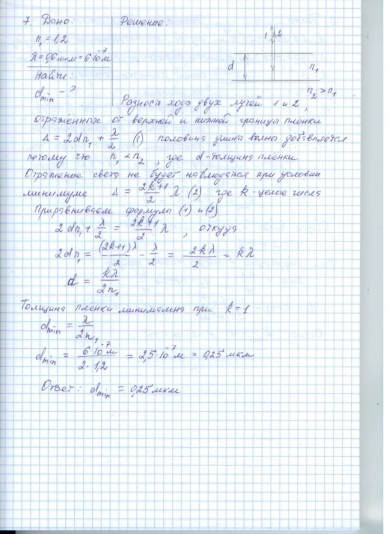 7 Дано:
Решение:
n₁ = 1,2
λ = 0,6 мкм = 6·10⁻⁷ м
Найти:
d min - ?
1 2
d
n₁
n₂ > n₁
Разность хода двух лучей 1 и 2,
отраженных от верхней и нижней границы пленки
Δ = 2dn₁ + λ/2 (1) половина длины волны добавляется
потому что n₁ < n₂, где d - толщина пленки
Отражение света не будет наблюдаться при условии
минимума Δ = (2k+1)/2 λ (2) где k - целое число
Приравниваем формулы (1) и (2)
2dn₁ + λ/2 = (2k+1)/2 λ, откуда
2dn₁ = (2k+1)λ/2 - λ/2 = 2kλ/2 = kλ
d = kλ/2n₁
Толщина пленки минимальна при k = 1
d min = λ/2n₁
d min = 6·10⁻⁷ м/2·1,2 = 2,5·10⁻⁷ м = 0,25 мкм
Ответ: d min = 0,25 мкм